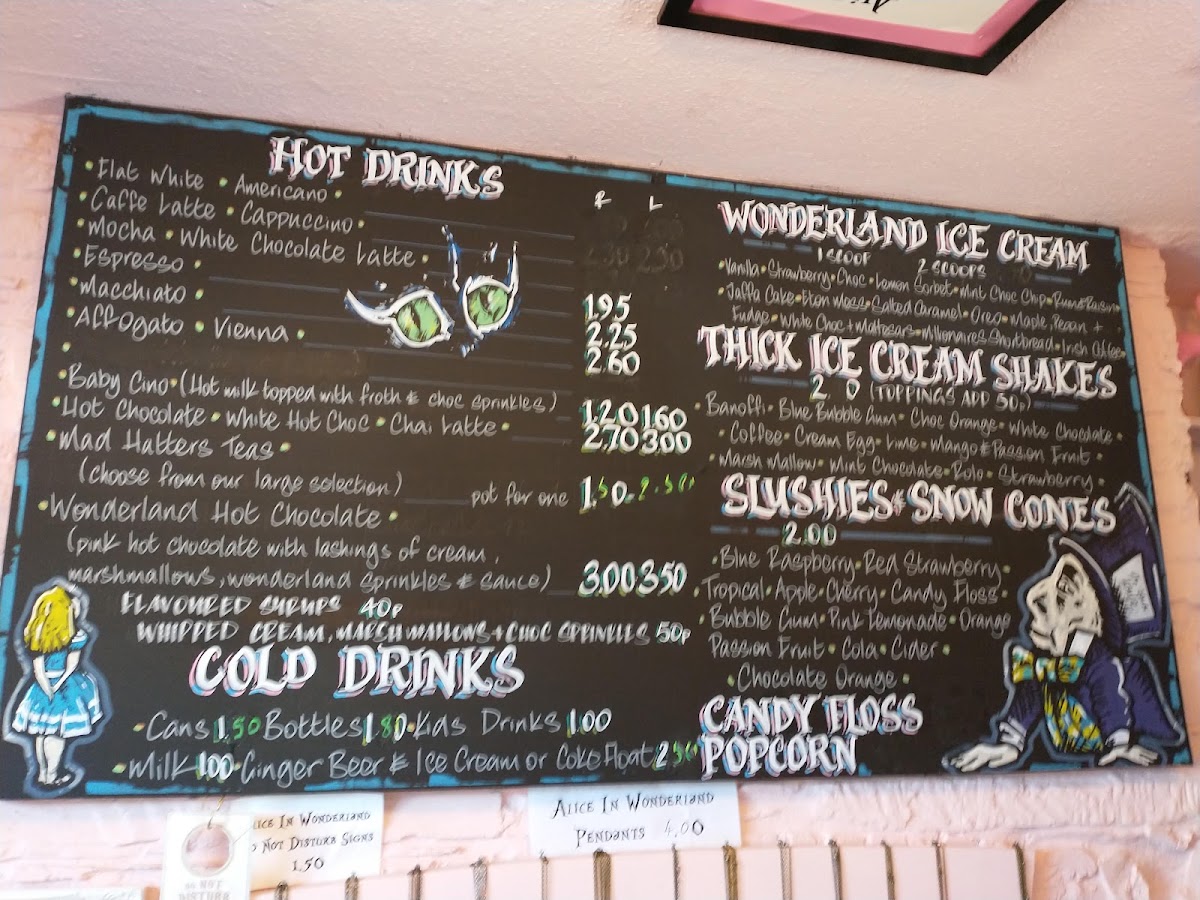 HOT DRINKS
R L
• Flat White • Americano •
• Caffe Latte • Cappuccino •
• Mocha • White Chocolate Latte •
• Espresso • 1.95
• Macchiato • 2.25
• Affogato • Vienna • 2.60
• Baby Cino • (Hot milk topped with froth & choc sprinkles) 1.20 1.60
• Hot Chocolate • White Hot Choc • Chai Latte • 2.70 3.00
• Mad Hatters Teas •
(choose from our large selection) pot for one 1.50
• Wonderland Hot Chocolate •
(pink hot chocolate with lashings of cream,
marshmallows, wonderland sprinkles & sauce) 3.00 3.50
FLAVOURED SYRUPS 40p
WHIPPED CREAM, MARSHMALLOWS + CHOC SPRINKLES 50p
COLD DRINKS
• Cans 1.50 Bottles 1.80 • Kids Drinks 1.00
• Milk 1.00 • Ginger Beer & Ice Cream or Coke Float 2.50
WONDERLAND ICE CREAM
1 SCOOP 2 SCOOPS
• Vanilla • Strawberry • Choc • Lemon Sorbet • Mint Choc Chip • Rum & Raisin •
• Jaffa Cake • Eton Mess • Salted Caramel • Oreo • Maple, Pecan +
Fudge • White Choc + Maltesers • Millionaires Shortbread • Irish Coffee •
THICK ICE CREAM SHAKES
(TOPPINGS ADD 50p)
• Banoffi • Blue Bubble Gum • Choc Orange • White Chocolate •
• Coffee • Cream Egg • Lime • Mango & Passion Fruit •
• Marsh Mallow • Mint Chocolate • Rolo • Strawberry •
SLUSHIES & SNOW CONES
2.00
• Blue Raspberry • Red Strawberry •
• Tropical • Apple • Cherry • Candy Floss •
• Bubble Gum • Pink Lemonade • Orange
Passion Fruit • Cola • Cider •
• Chocolate Orange •
CANDY FLOSS
POPCORN
ALICE IN WONDERLAND
DO NOT DISTURB SIGNS
1.50
DO NOT
DISTURB
ALICE IN WONDERLAND
PENDANTS 4.00